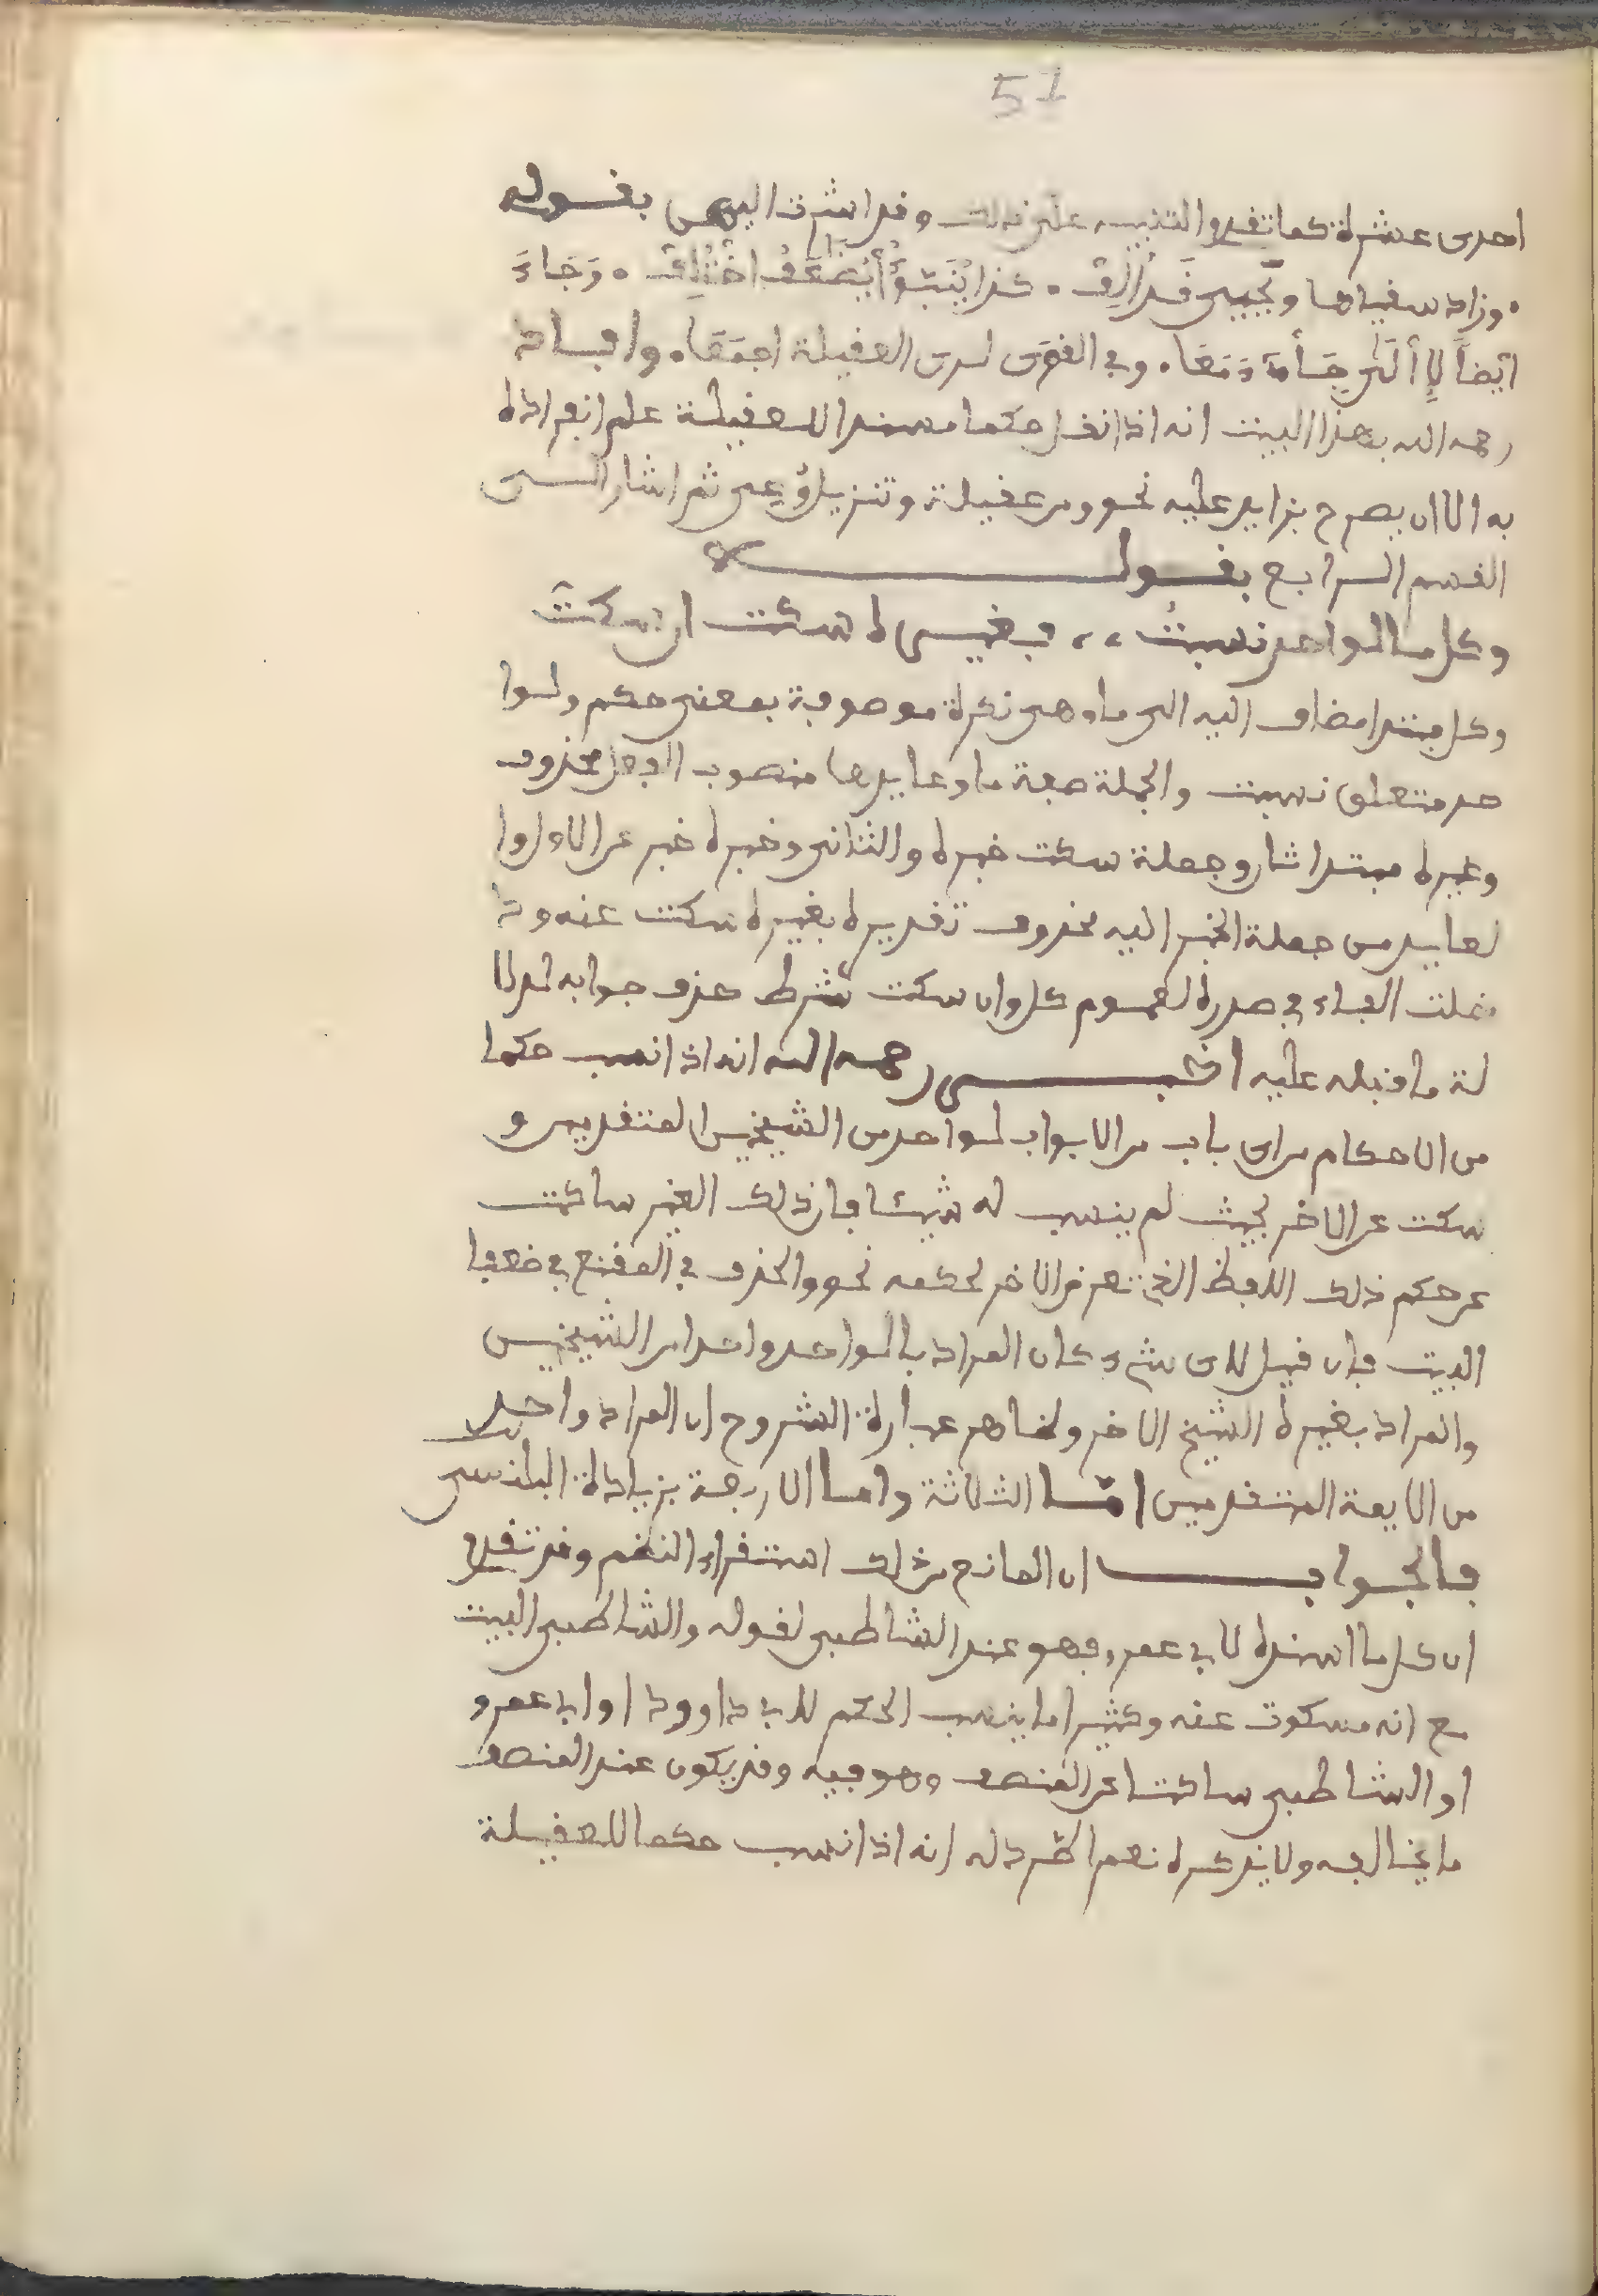 51
احدى عشرة كما تقدم التنبيه على ذلك وقد اشرت اليهن بقوله
وزاد سقياها ويحيي قد الف كذا ينبؤا يضعف اختلف وجاء
ايضا لإ الى جاء معا وفي القوى لدى العقيلة اجمعا وافاد
رحمه الله بهذا البيت انه اذا نقل حكما مسندا للعقيلة علم انفراده
به الا ان يصرح بزايد عليه نحو ومن عقيلة وتنزيل وعى ثم اشار الى
القسم الرابع بقوله
وكل ما لواحد نسبت فغيره سكت ان سكت
وكل مبتدا مضاف اليه الى ما وهي نكرة موصوفة بمعنى حكم ولوا
حد متعلق نسبت والجملة صفة ما وعايدها منصوب الفعل محذوف
وغيره مبتدا ثان وجملة سكت خبره والثاني وخبره خبر عن الاول وا
لعايد من جملة الخبر اليه محذوف تقديره بغيره سكت عنه ود
خلت الفاء في صدره لعموم كل وان سكت شرط حذف جوابه لدلا
لة ما قبله عليه اخبر رحمه الله انه اذا نسب حكما
من الاحكام من اي باب من الابواب لواحد من الشيخين المتقدمين و
سكت عن الاخر بحيث لم ينسب له شيئا فان ذلك الغير ساكت
عن حكم ذلك اللفظ الذي تعرض الاخر لحكمه نحو والحذف في المقنع في ضعفا
البيت فان قيل لاي شيء كان المراد بالواحد واحدا من الشيخين
والمراد بغيره الشيخ الاخر وظاهر عبارة الشروح ان المراد واحد
من الايمة المتقدمين اما الثلاثة واما الاربعة بزيادة البلنسي
فالجواب ان المانع من ذلك استقراء النظم وقد تقدم
ان كل ما اسنده لابي عمرو فهو عند الشاطبي لقوله والشاطبي البيت
مع انه مسكوت عنه وكثيرا ما ينسب الحكم لابي داوود او ابي عمرو
او الشاطبي ساكتا عن المنصف وهو فيه وقد يكون عند المنصف
ما يخالفه ولا يذكره نعم اطرد له انه اذا نسب حكما للعقيلة